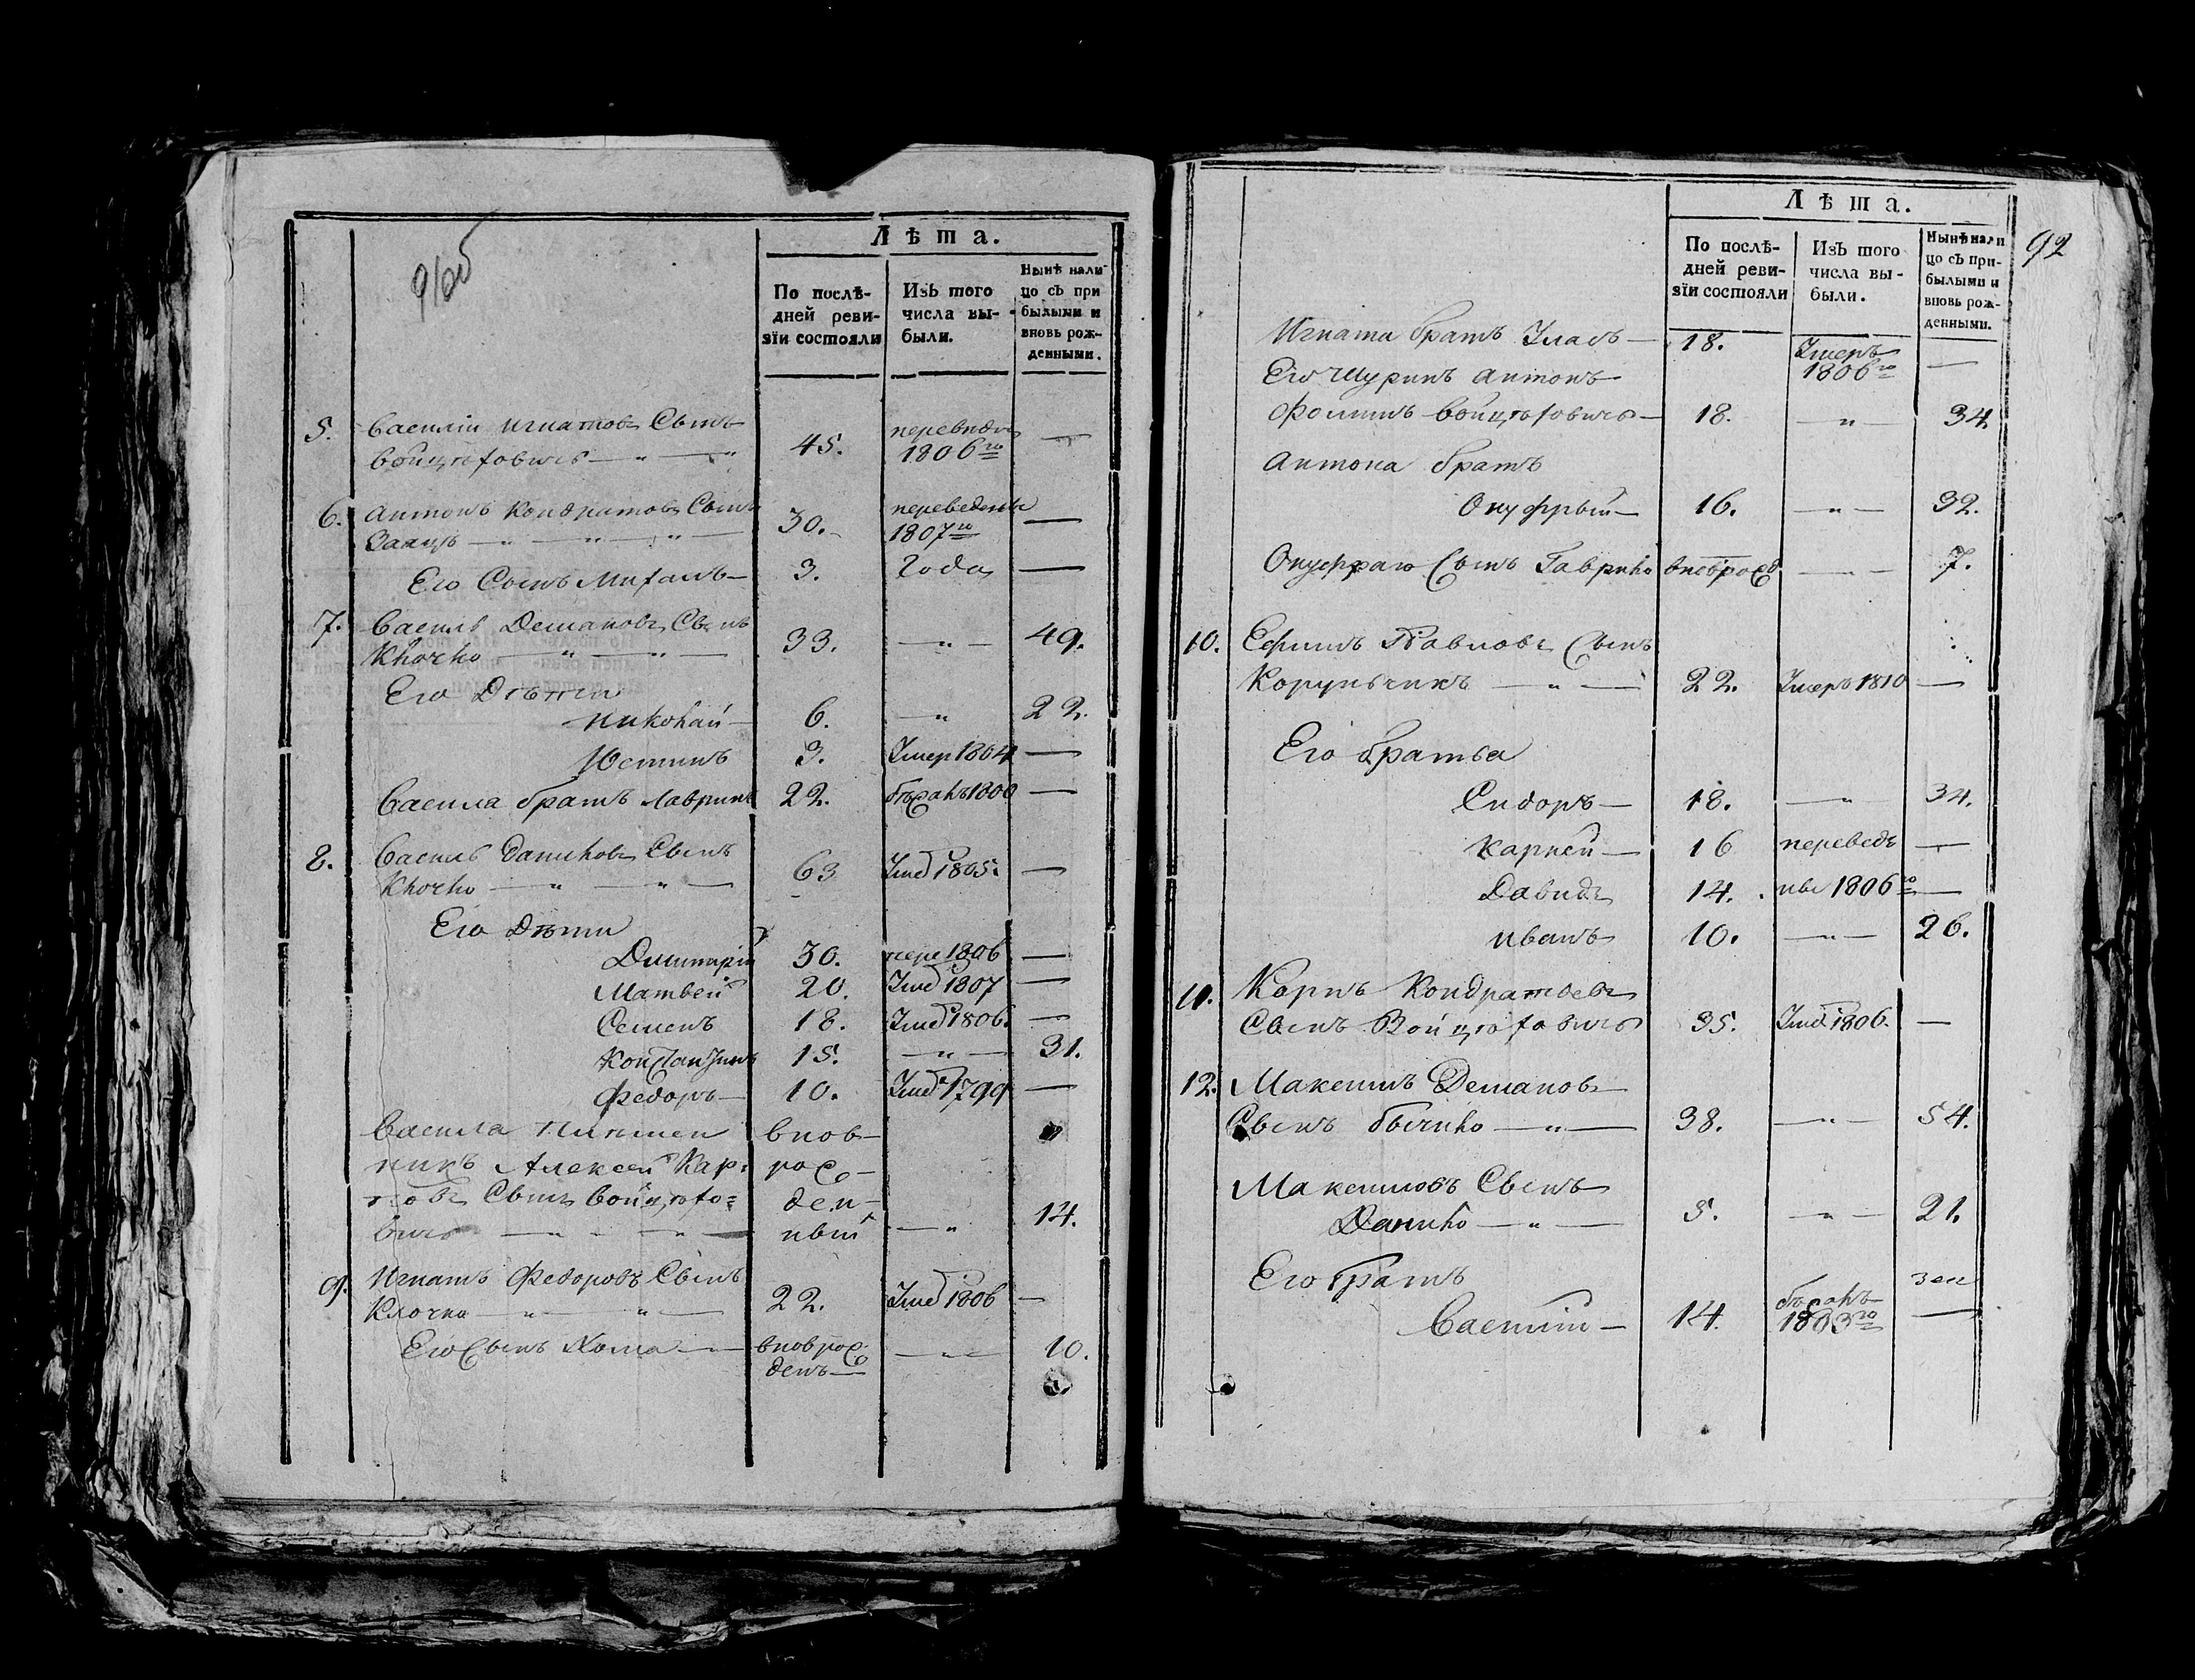 91об
Лѣта.
По послѣ-
дней реви-
зїи состояли
Изъ того
числа вы-
были.
Нынѣ нали
цо съ при
былыми и
вновь рож-
денными.
5. Василій Игнатовъ Сынъ
Войцѣховичъ — „ — „ 45. переведен 1806го —
6. Антонъ Кондратовъ Сынъ
— „ — „ — „ — 30. переведены 1807го —
Его Сынъ Михалъ — 3. Года —
7. Василь Демановъ Сынъ
Клочко — „ — „ — 33. — „ — 49.
Его Дѣти
Николай — 6. — „ 22.
Юстинъ 3. Умер 1804 —
Василя братъ Лавринъ 22. бѣжалъ 1800 —
8. Василь Даниловъ Сынъ
Клочко — „ — „ — 63 Умер 1805. —
Его Дѣти
Дмитрій 30. пере 1806 —
Матвей 20. Умер 1807 —
Семенъ 18. Умер 1806. —
Константинъ 15. — „ — 31.
Федоръ — 10. Умер 1799 —
Василя племен внов-
никъ Алексей Кар- рож-
повъ Сынъ Войцѣхо- ден-
вичъ — „ — „ — ный — „ 14.
9. Игнатъ Федоровъ Сынъ
Клочко — „ — „ — 22. Умер 1806 —
Его Сынъ Хома — вноврож-
денъ — — „ — 10.
92
Лѣта.
По послѣ-
дней реви-
зїи состояли
Изъ того
числа вы-
были.
Нынѣ нали
цо съ при-
былыми и
вновь рож-
денными.
Игната братъ Уласъ — 18. Умеръ 1806го —
Его Шуринъ Антонъ
Фоминъ Войцѣховичъ — 18. — „ — 34.
Антона братъ
Онуфрый — 16. — „ — 32.
Онуфраго Сынъ Гаврило вноврожд — „ — 7.
10. Ефимъ Павловъ Сынъ
Корупьчикъ — „ — 22. Умеръ 1810 —
Его братья
Сидоръ — 18. — „ — 34.
Карпей — 16 переведе —
Давидъ 14. ны 1806го —
Иванъ 10. — „ — 26.
11. Карпъ Кондратьевъ
Сынъ Войцѣховичъ 35. Умер 1806. —
12. Максимъ Демановъ
Сынъ Бычко — „ — 38. — „ — 54.
Максимовъ Сынъ
Данило — „ — 5. — „ — 21.
Его братъ
Василій — 14. бѣжалъ 1803го —